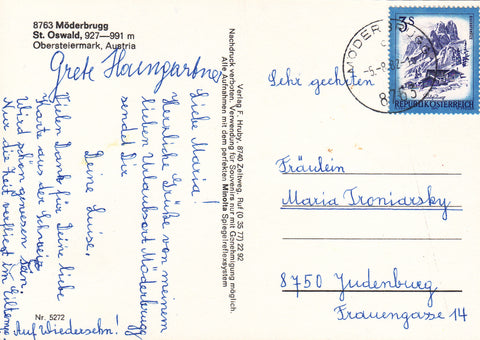 8763 Möderbrugg
St. Oswald, 927—991 m
Obersteiermark, Austria
Grete Haingartner
Liebe Maria!
Herzliche Grüße von meinem
lieben Urlaubsort Möderbrugg
sendet Dir
Deine Luise.
Vielen Dank für Deine liebe
Karte aus der Schweiz
Wird schön gewesen sein.
Nur die Zeit verfliegt im Eiltempo.
Auf Wiedersehn!
Nr. 5272
Verlag F. Hruby, 8740 Zeltweg, Ruf (0 35 77) 22 92
Nachdruck verboten. Verwendung für Souvenirs nur mit Genehmigung möglich.
Alle Aufnahmen mit dem perfekten Minolta Spiegelreflexsystem
3S
REPUBLIK ÖSTERREICH
8763
Sehr geehrtes
Fräulein
Maria Troniarsky
8750 Judenburg
Frauengasse 14